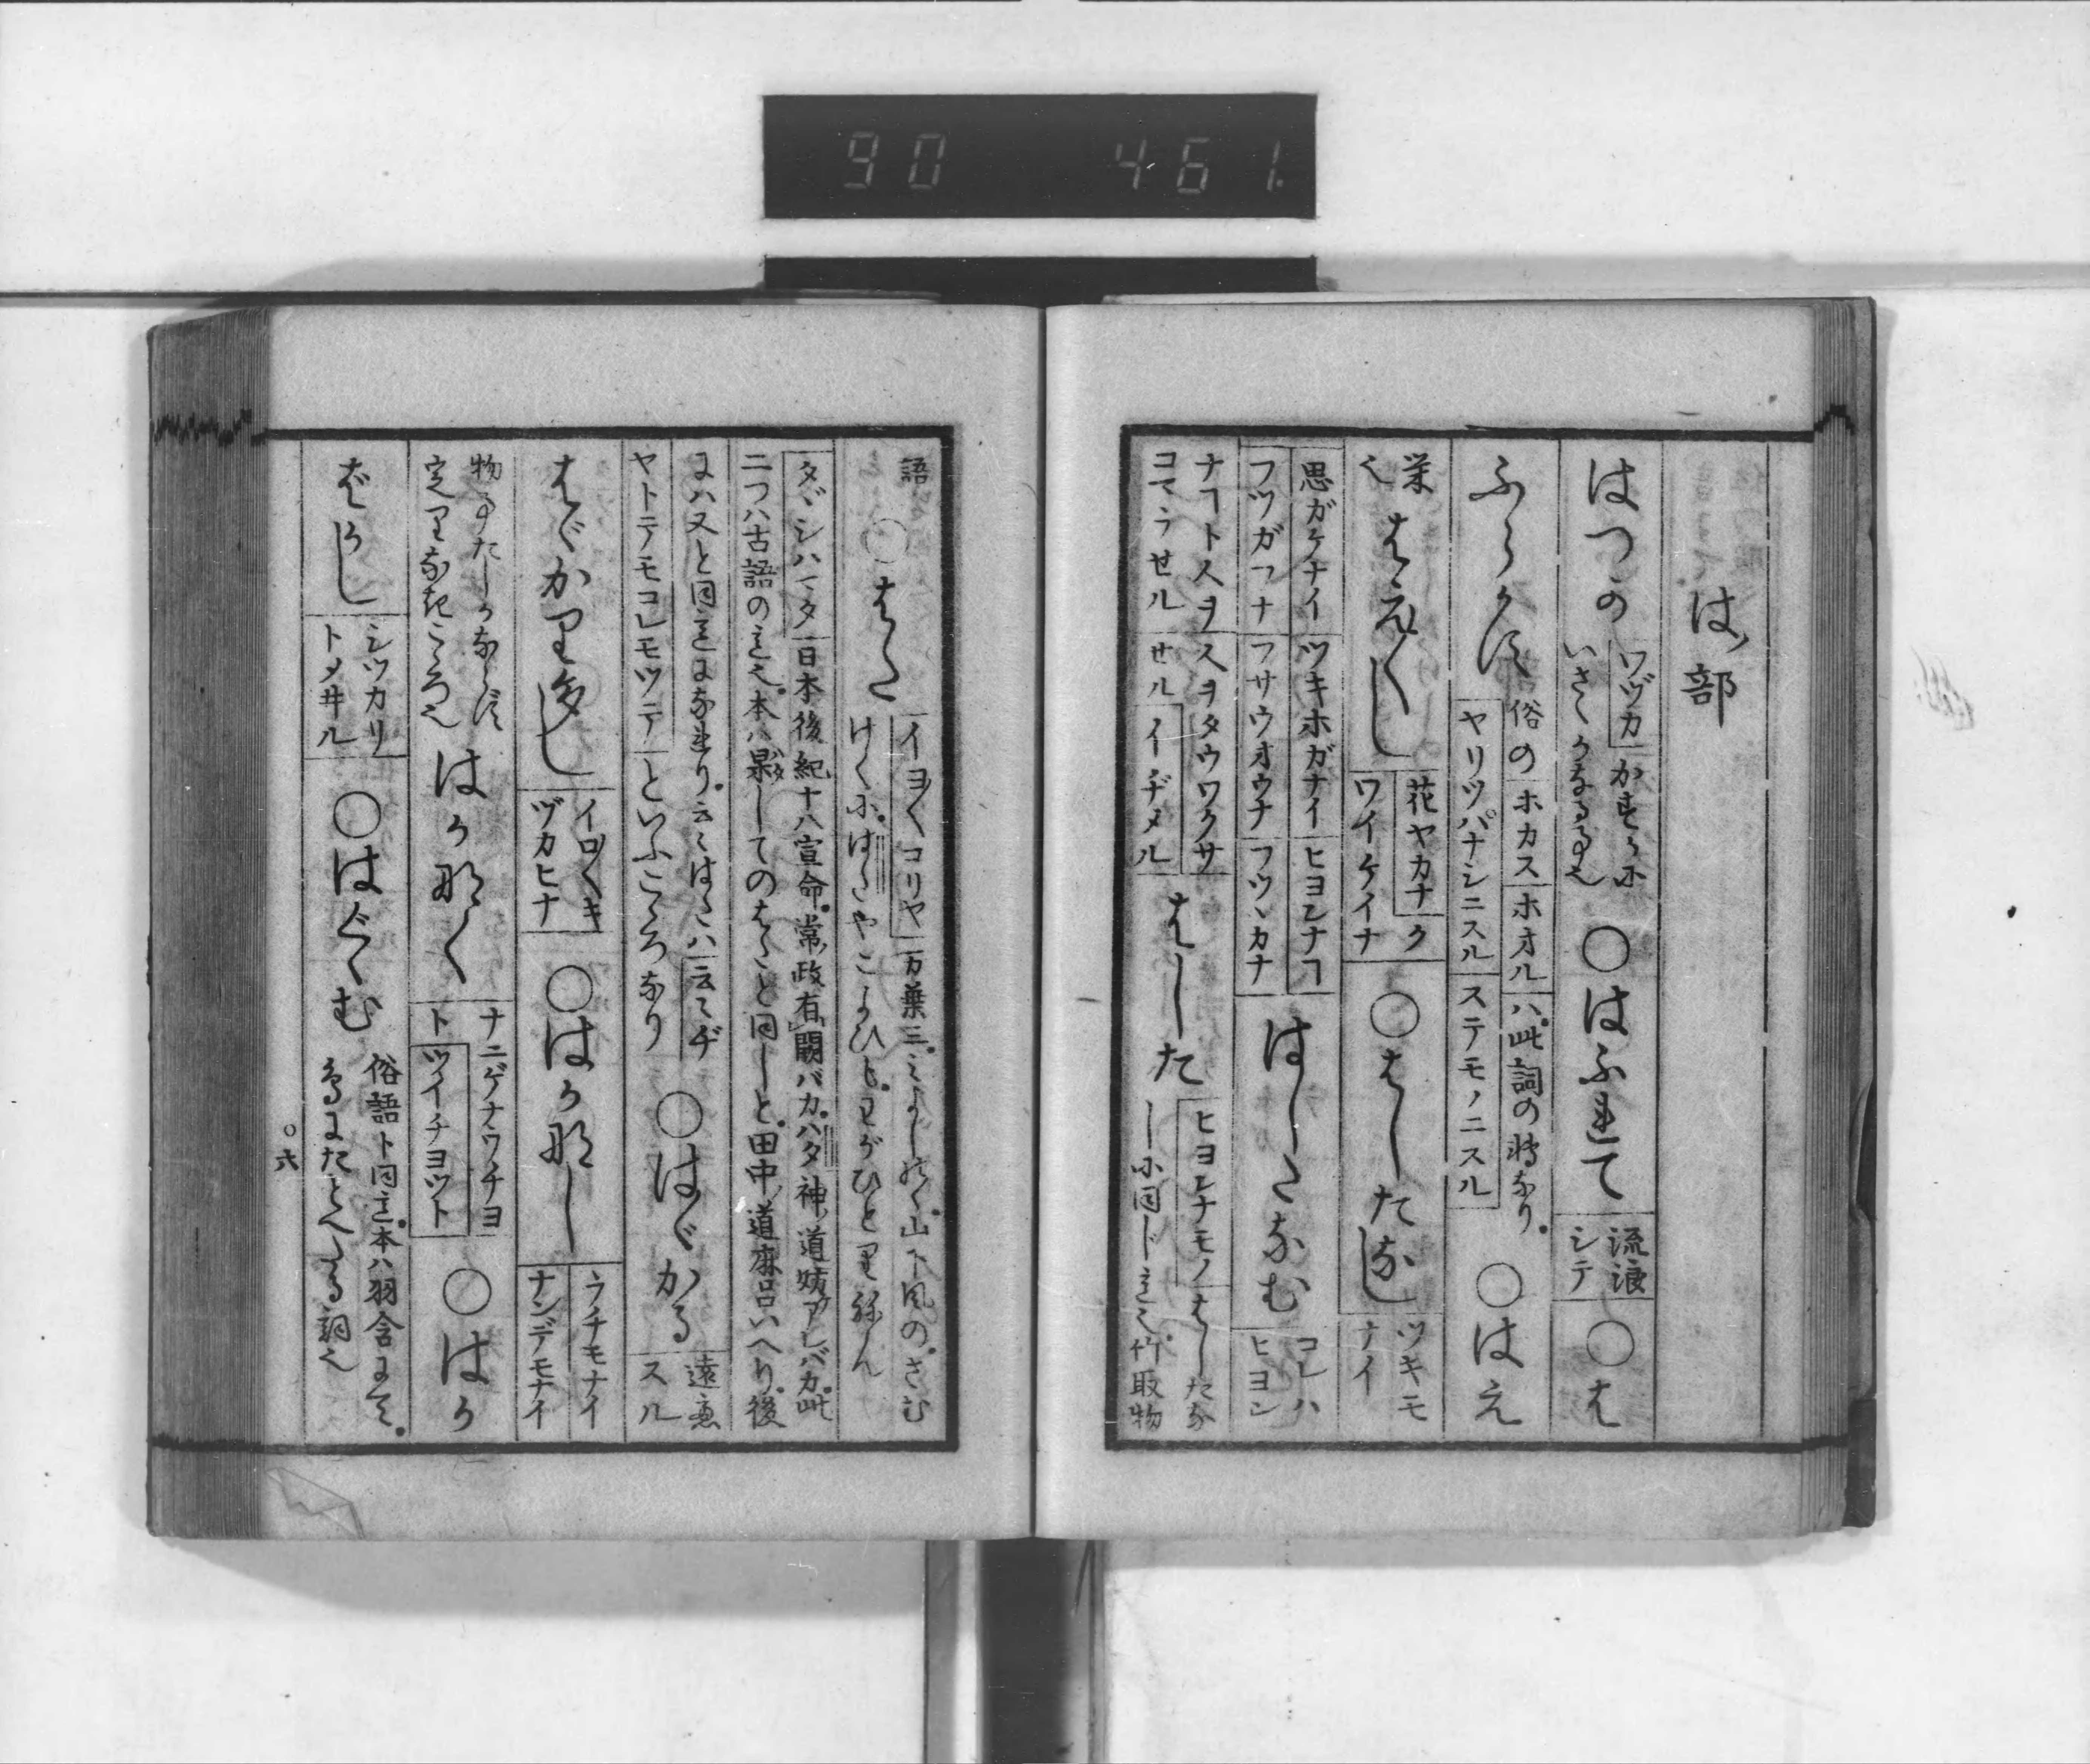 90 461
は部
はつか ワヅカ かすかに いさゝかなる事也 ○はふれて 流浪シテ ○は
ふらかす 俗の ホカス ホオル ハ此詞の転なり。 ヤリツパナシニスル ステモノニスル ○はえ
栄也 はえ〴〵し 花ヤカナ クワイケイナ ○はしたなし ツキモナイ
思ガケナイ ツキホガナイ ヒヨンナヿ フツガフナ フサウオウナ フツヽカナ はしたなむ コレハヒヨン
ナヿトスヲスヲタウワクサ コマラせル せル イヂメル はした ヒヨンナモノ はしたなしに同じ意也 竹取物
語 ○はた イヨ〳〵 コリヤ 万葉三。みよし野の。山下風の。さむけくに。はたやこよひも。わがひとりねん
タヾシハマタ 日本後紀十八宣命。常政有闕バカ。ハタ神道妨アレバカ。此二つハ古語の意也。本ハ果してのはたと同しと。田中道麻呂いへり。後
にハ又と同意になれり。云々はたハ 云々ヂヤトテモコレモツテ といふこゝろなり ○はゞかる 遠慮スル
はゞかり多し イロ〳〵キヅカヒナ ○はか那し ラチモナイ ナンデモナイ
物事たしかならず 定りなきこゝろ也 はか那く ナニゲナウチヨト ツイチヨツト ○はか
ばかし シツカリトメ井ル ○はぐくむ 俗語ト同意。本ハ羽含にて。鳥にたとへたる詞也
○六